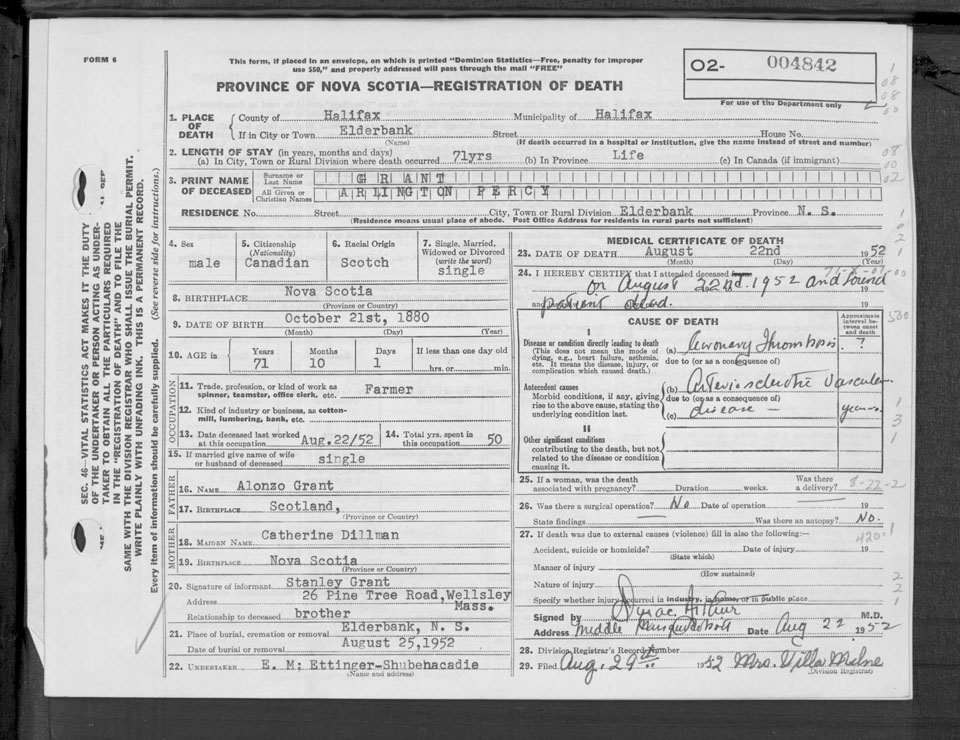 FORM 6
This form, if placed in an envelope, on which is printed "Dominion Statistics—Free, penalty for improper
use $50," and properly addressed will pass through the mail "FREE"
O2- 004842
For use of the Department only
PROVINCE OF NOVA SCOTIA—REGISTRATION OF DEATH
SEC. 46—VITAL STATISTICS ACT MAKES IT THE DUTY
OF THE UNDERTAKER OR PERSON ACTING AS UNDER-
TAKER TO OBTAIN ALL THE PARTICULARS REQUIRED
IN THE "REGISTRATION OF DEATH" AND TO FILE THE
SAME WITH THE DIVISION REGISTRAR WHO SHALL ISSUE THE BURIAL PERMIT.
WRITE PLAINLY WITH UNFADING INK. THIS IS A PERMANENT RECORD.
Every item of information should be carefully supplied. (See reverse side for instructions.)
1. PLACE OF DEATH
County of Halifax Municipality of Halifax
If in City or Town Elderbank Street House No.
(Name) (If death occurred in a hospital or institution, give the name instead of street and number)
2. LENGTH OF STAY (in years, months and days)
(a) In City, Town or Rural Division where death occurred 71yrs (b) In Province Life (c) In Canada (if immigrant)
3. PRINT NAME OF DECEASED
Surname or Last Name GRANT
All Given or Christian Names ARLINGTON PERCY
RESIDENCE No. Street City, Town or Rural Division Elderbank Province N. S.
(Residence means usual place of abode. Post Office Address for residents in rural parts not sufficient)
4. Sex male
5. Citizenship (Nationality) Canadian
6. Racial Origin Scotch
7. Single, Married, Widowed or Divorced (write the word) single
8. BIRTHPLACE Nova Scotia
(Province or Country)
9. DATE OF BIRTH October 21st, 1880
(Month) (Day) (Year)
10. AGE in Years 71 Months 10 Days 1 If less than one day old hrs. or min.
OCCUPATION
11. Trade, profession, or kind of work as
spinner, teamster, office clerk, etc. Farmer
12. Kind of industry or business, as cotton-
mill, lumbering, bank, etc.
13. Date deceased last worked at this occupation Aug.22/52
14. Total yrs. spent in this occupation 50
15. If married give name of wife
or husband of deceased single
FATHER
16. NAME Alonzo Grant
17. BIRTHPLACE Scotland,
(Province or Country)
MOTHER
18. MAIDEN NAME Catherine Dillman
19. BIRTHPLACE Nova Scotia
(Province or Country)
20. Signature of informant Stanley Grant
Address 26 Pine Tree Road,Wellsley
Mass.
Relationship to deceased brother
21. Place of burial, cremation or removal Elderbank, N. S.
Date of burial or removal August 25,1952
22. UNDERTAKER E. M: Ettinger-Shubehacadie
(Name and address)
MEDICAL CERTIFICATE OF DEATH
23. DATE OF DEATH August 22nd 1952
(Month) (Day) (Year)
24. I HEREBY CERTIFY that I attended deceased from
on August 22nd 1952 and found
and patient dead. 19
CAUSE OF DEATH
Approximate interval between onset and death
I
Disease or condition directly leading to death
(This does not mean the mode of
dying, e.g., heart failure, asthenia,
etc. It means the disease, injury, or
complication which caused death.)
(a) Coronary Thrombosis. ?
due to (or as a consequence of)
Antecedent causes
Morbid conditions, if any, giving
rise to the above cause, stating the
underlying condition last.
(b) Arteriosclerotic Vascular
due to (or as a consequence of)
(c) disease — years.
II
Other significant conditions
contributing to the death, but not
related to the disease or condition
causing it.
25. If a woman, was the death
associated with pregnancy? Duration weeks. Was there a delivery? 8-22-2
26. Was there a surgical operation? No Date of operation 19
State findings Was there an autopsy? No.
27. If death was due to external causes (violence) fill in also the following:— 420.1
Accident, suicide or homicide? Date of injury 19
(State which)
Manner of injury
(How sustained)
Nature of injury
Specify whether injury occurred in industry, in home, or in public place
Signed by M.D.
Address Middle Musquodoboit Date Aug 22 1952
28. Division Registrar's Record Number
29. Filed Aug. 29th 1952 Mrs. Villa
(Division Registrar)